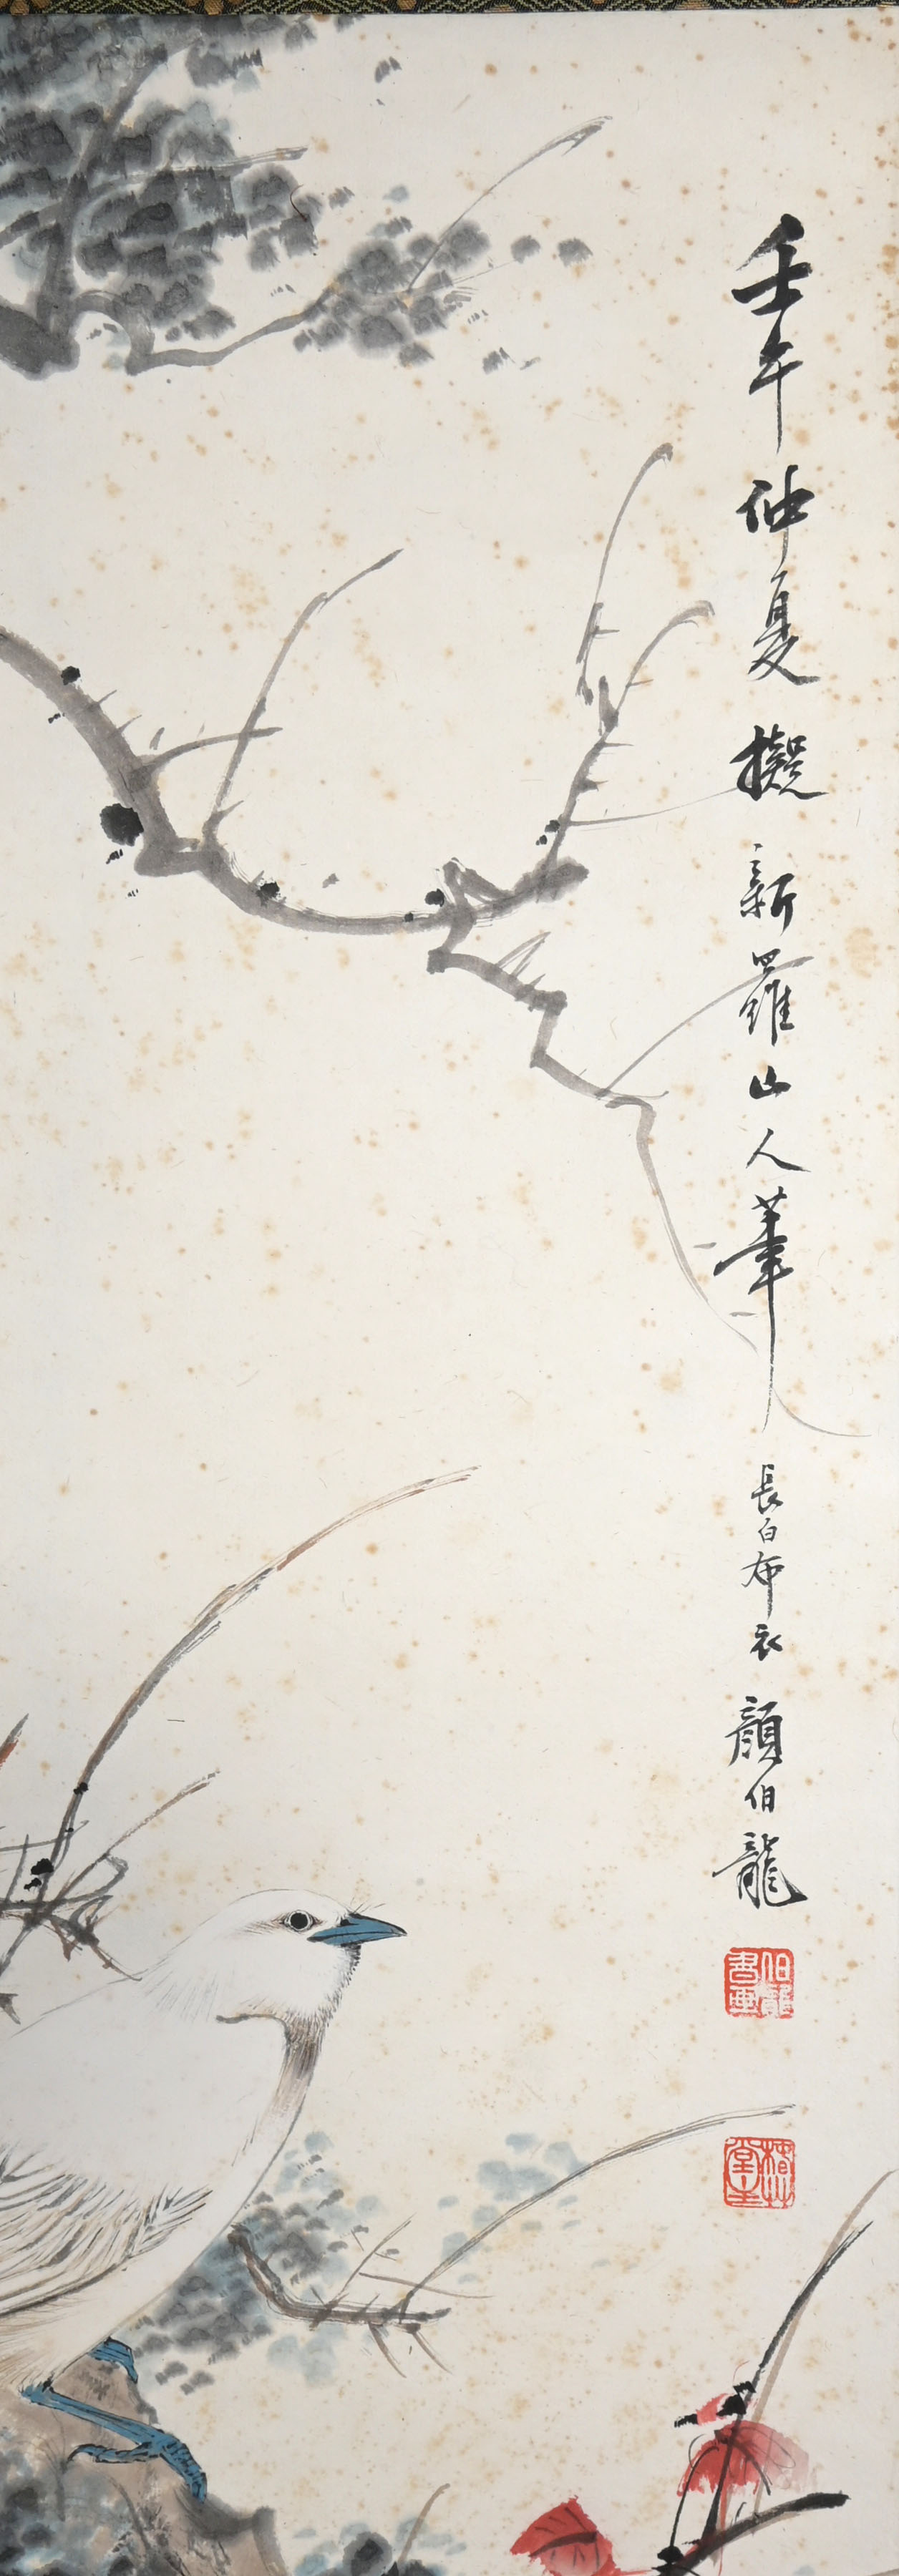 壬午仲夏擬新羅山人筆長白布衣顏伯龍
伯龍書畫